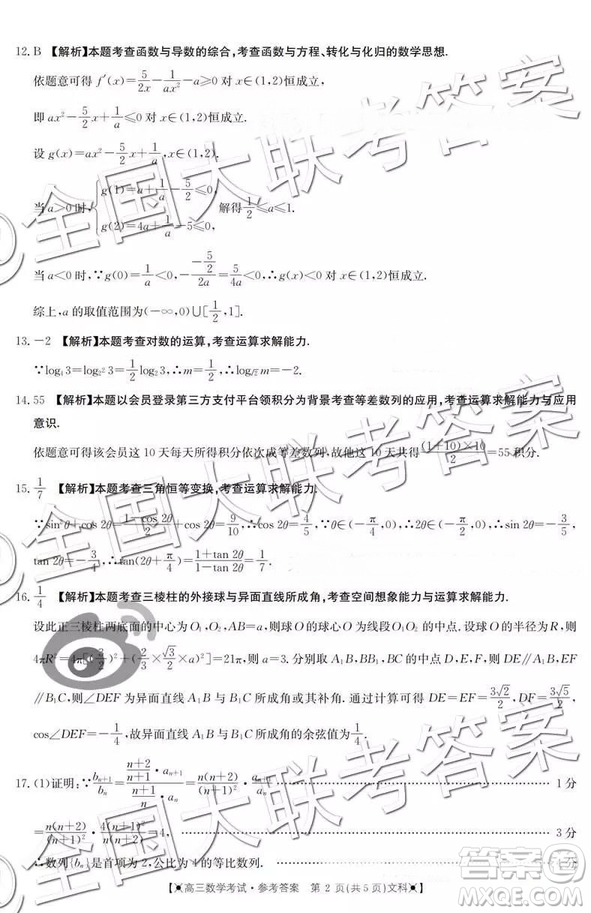 12. B 【解析】本题考查函数与导数的综合,考查函数与方程、转化与化归的数学思想.
依题意可得 f′(x)=5/(2x)-1/(ax²)-a≥0 对 x∈(1,2)恒成立,
即 ax²-5/2x+1/a≤0 对 x∈(1,2)恒成立.
设 g(x)=ax²-5/2x+1/a≤0 对 x∈(1,2)恒成立.
当 a>0 时, { g(1)=a+1/a-5/2≤0, g(2)=4a+1/a-5≤0, 解得1/2≤a≤1.
当 a<0 时,∵g(0)=1/a<0, -(-5/2)/(2a)=5/(4a)<0,∴g(x)<0 对 x∈(1,2)恒成立.
综上,a 的取值范围为(-∞,0)∪[1/2,1].
13. -2 【解析】本题考查对数的运算,考查运算求解能力.
14. 55 【解析】本题以会员登录第三方支付平台领积分为背景考查等差数列的应用,考查运算求解能力与应用
意识.
依题意可得该会员这 10 天每天所得积分依次成等差数列,故他这 10 天共得((1+10)×10)/2=55 积分.
15. 1/7 【解析】本题考查三角恒等变换,考查运算求解能力.
∵sin2θ+cos2θ=(1-cos2θ)/2=9/10,∴cos2θ=4/5.∵θ∈(-π/4,0),∴2θ∈(-π/2,0),∴sin2θ=-3/5,
tan2θ=-3/4,∴tan(2θ+π/4)=(1+tan2θ)/(1-tan2θ)=1/7.
16. 1/4 【解析】本题考查三棱柱的外接球与异面直线所成角,考查空间想象能力与运算求解能力.
设此正三棱柱两底面的中心为O₁,O₂,AB=a,则球O 的球心O为线段O₁O₂ 的中点.设球O 的半径为R,则
4πR²=4π[(3/2)²+(2/3×√3/2×a)²]=21π,则 a=3.分别取 A₁B₁,BB₁,B₁C₁ 的中点D,E,F,则DE∥A₁B,EF
∥B₁C,则∠DEF 为异面直线A₁B 与B₁C 所成角或其补角.易得DE=EF=3√2/2,DF=3√5/2,
cos∠DEF=-1/4,故异面直线A₁B 与B₁C 所成角的余弦值为1/4.
=n(n+2)/(n+1)²·4(n+1)²/(n(n+2))=4, 3 分
∴数列{bₙ}是首项为 2,公比为 4 的等比数列.
高三数学考试·参考答案 第 2 页(共 5 页)文科
全国大联考答案